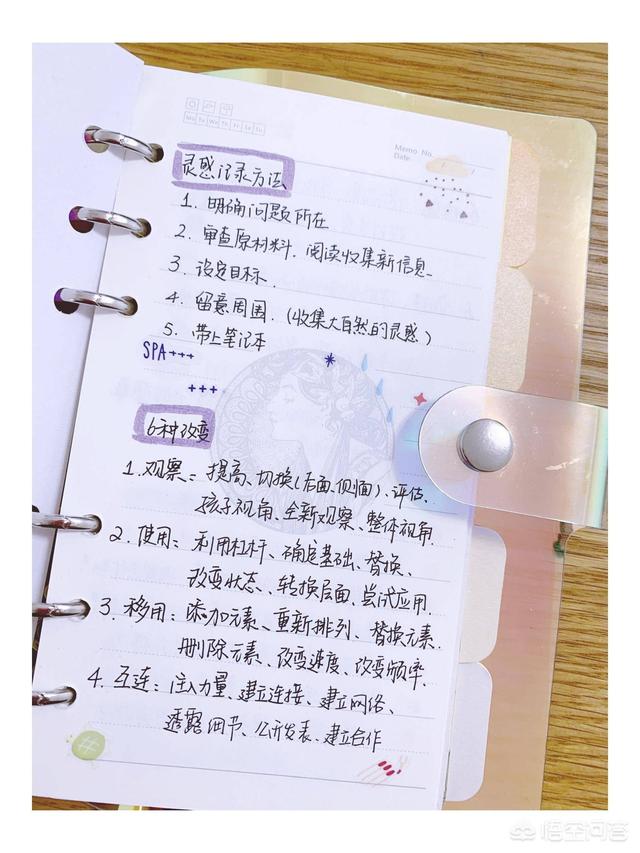 Mo Tu We Th Fr Sa Su
Memo No.
Date
灵感记录方法
1. 明确问题所在
2. 审查原材料.阅读收集新信息.
3. 设定目标.
4. 留意周围.(收集大自然的灵感)
5. 带上笔记本
SPA+++
+++
6种改变
1.观察:提高、切换(后面、侧面)、评估.
孩子视角、全新观察、整体视角.
2. 使用:利用杠杆、确定基础、替换、
改变状态、转换层面、尝试应用.
3. 移用:添加元素、重新排列、替换元素.
删除元素、改变速度、改变频率.
4. 互连:注入力量、建立连接、建立网络、
透露细节、公开发表、建立合作
#
悟空问答